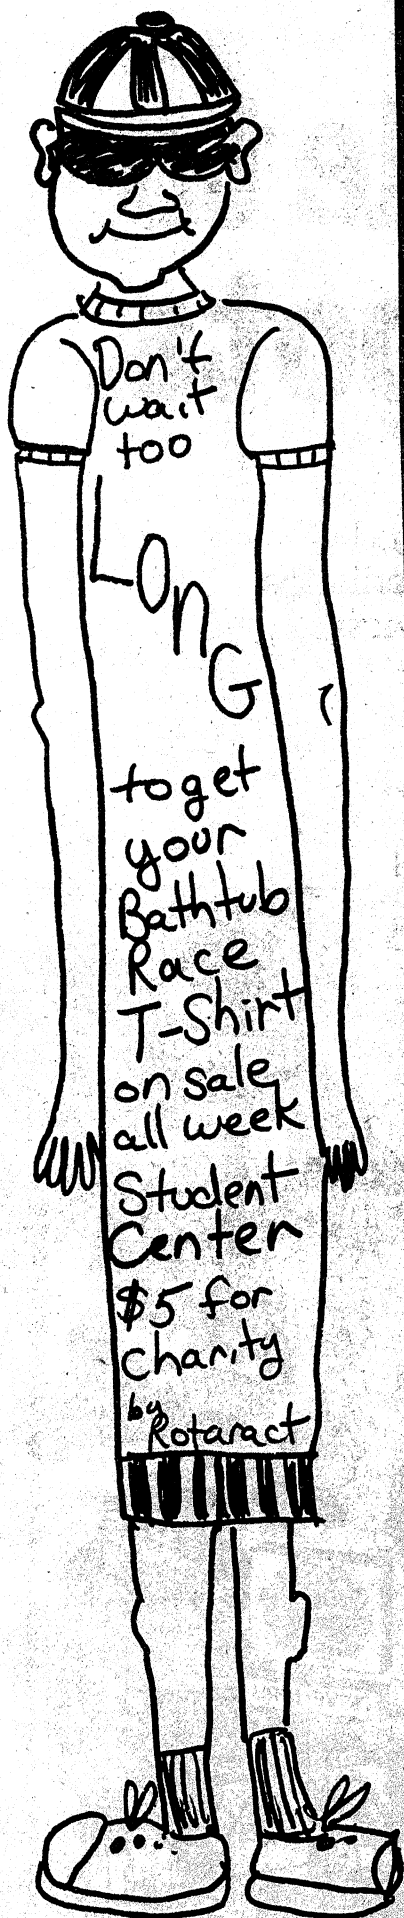 Don't
wait
too
LOnG
to get
your
Bathtub
Race
T-Shirt
on sale
all week
Student
Center
$5 for
charity
by Rotaract